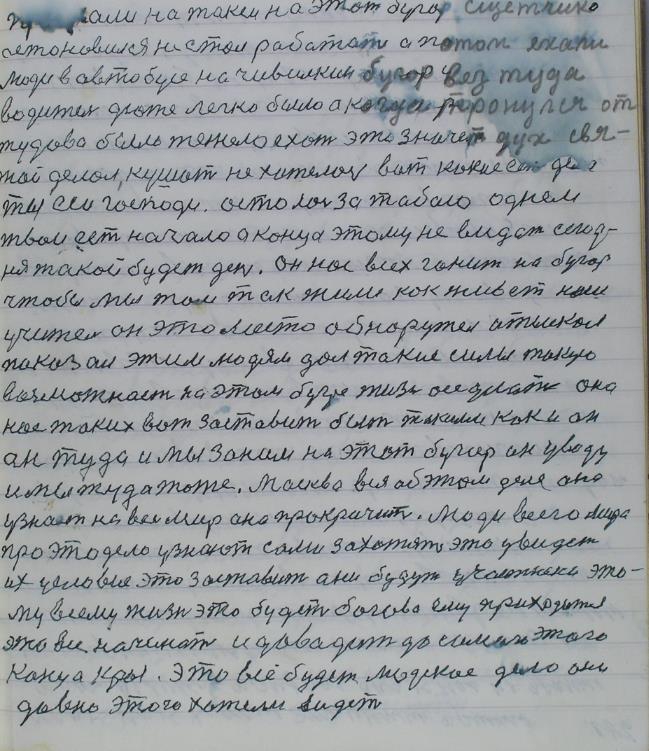 на такси на этот бугор
а потом ехали
люди в автобусе на чивилкин бугор вез туда
водител даже легко было а когда тронулся от
тудова было тежело ехат это значет дух свя-
той делал, кушат не хателос вот какие
ты еси господи. остолос за табою однем
твои ест начало а конца этому не видат сегод-
ня такой будет ден. Он нас всех гонит на бугор
чтобы мы там так жили как живет наш
учител он это место обнаружел атыскал
паказал этим людям дал такие силы такую
вазможнаст на этом бугре жизн она
нас таких вот заставит быт такими как и он
он туда и мы за ним на этот бугор он у воду
и мы туда тоже. Москва вся об этом деле она
узнает на вес мир она прокричит. Люди всего мира
про это дело узнают сами захотят это увидет
их условия это заставит ани будут участники это-
му всему жизн это будет богова ему приходится
это все начинат и довадит до самого этого
конца края. Это всё будет людское дело они
давно этого хотели видет